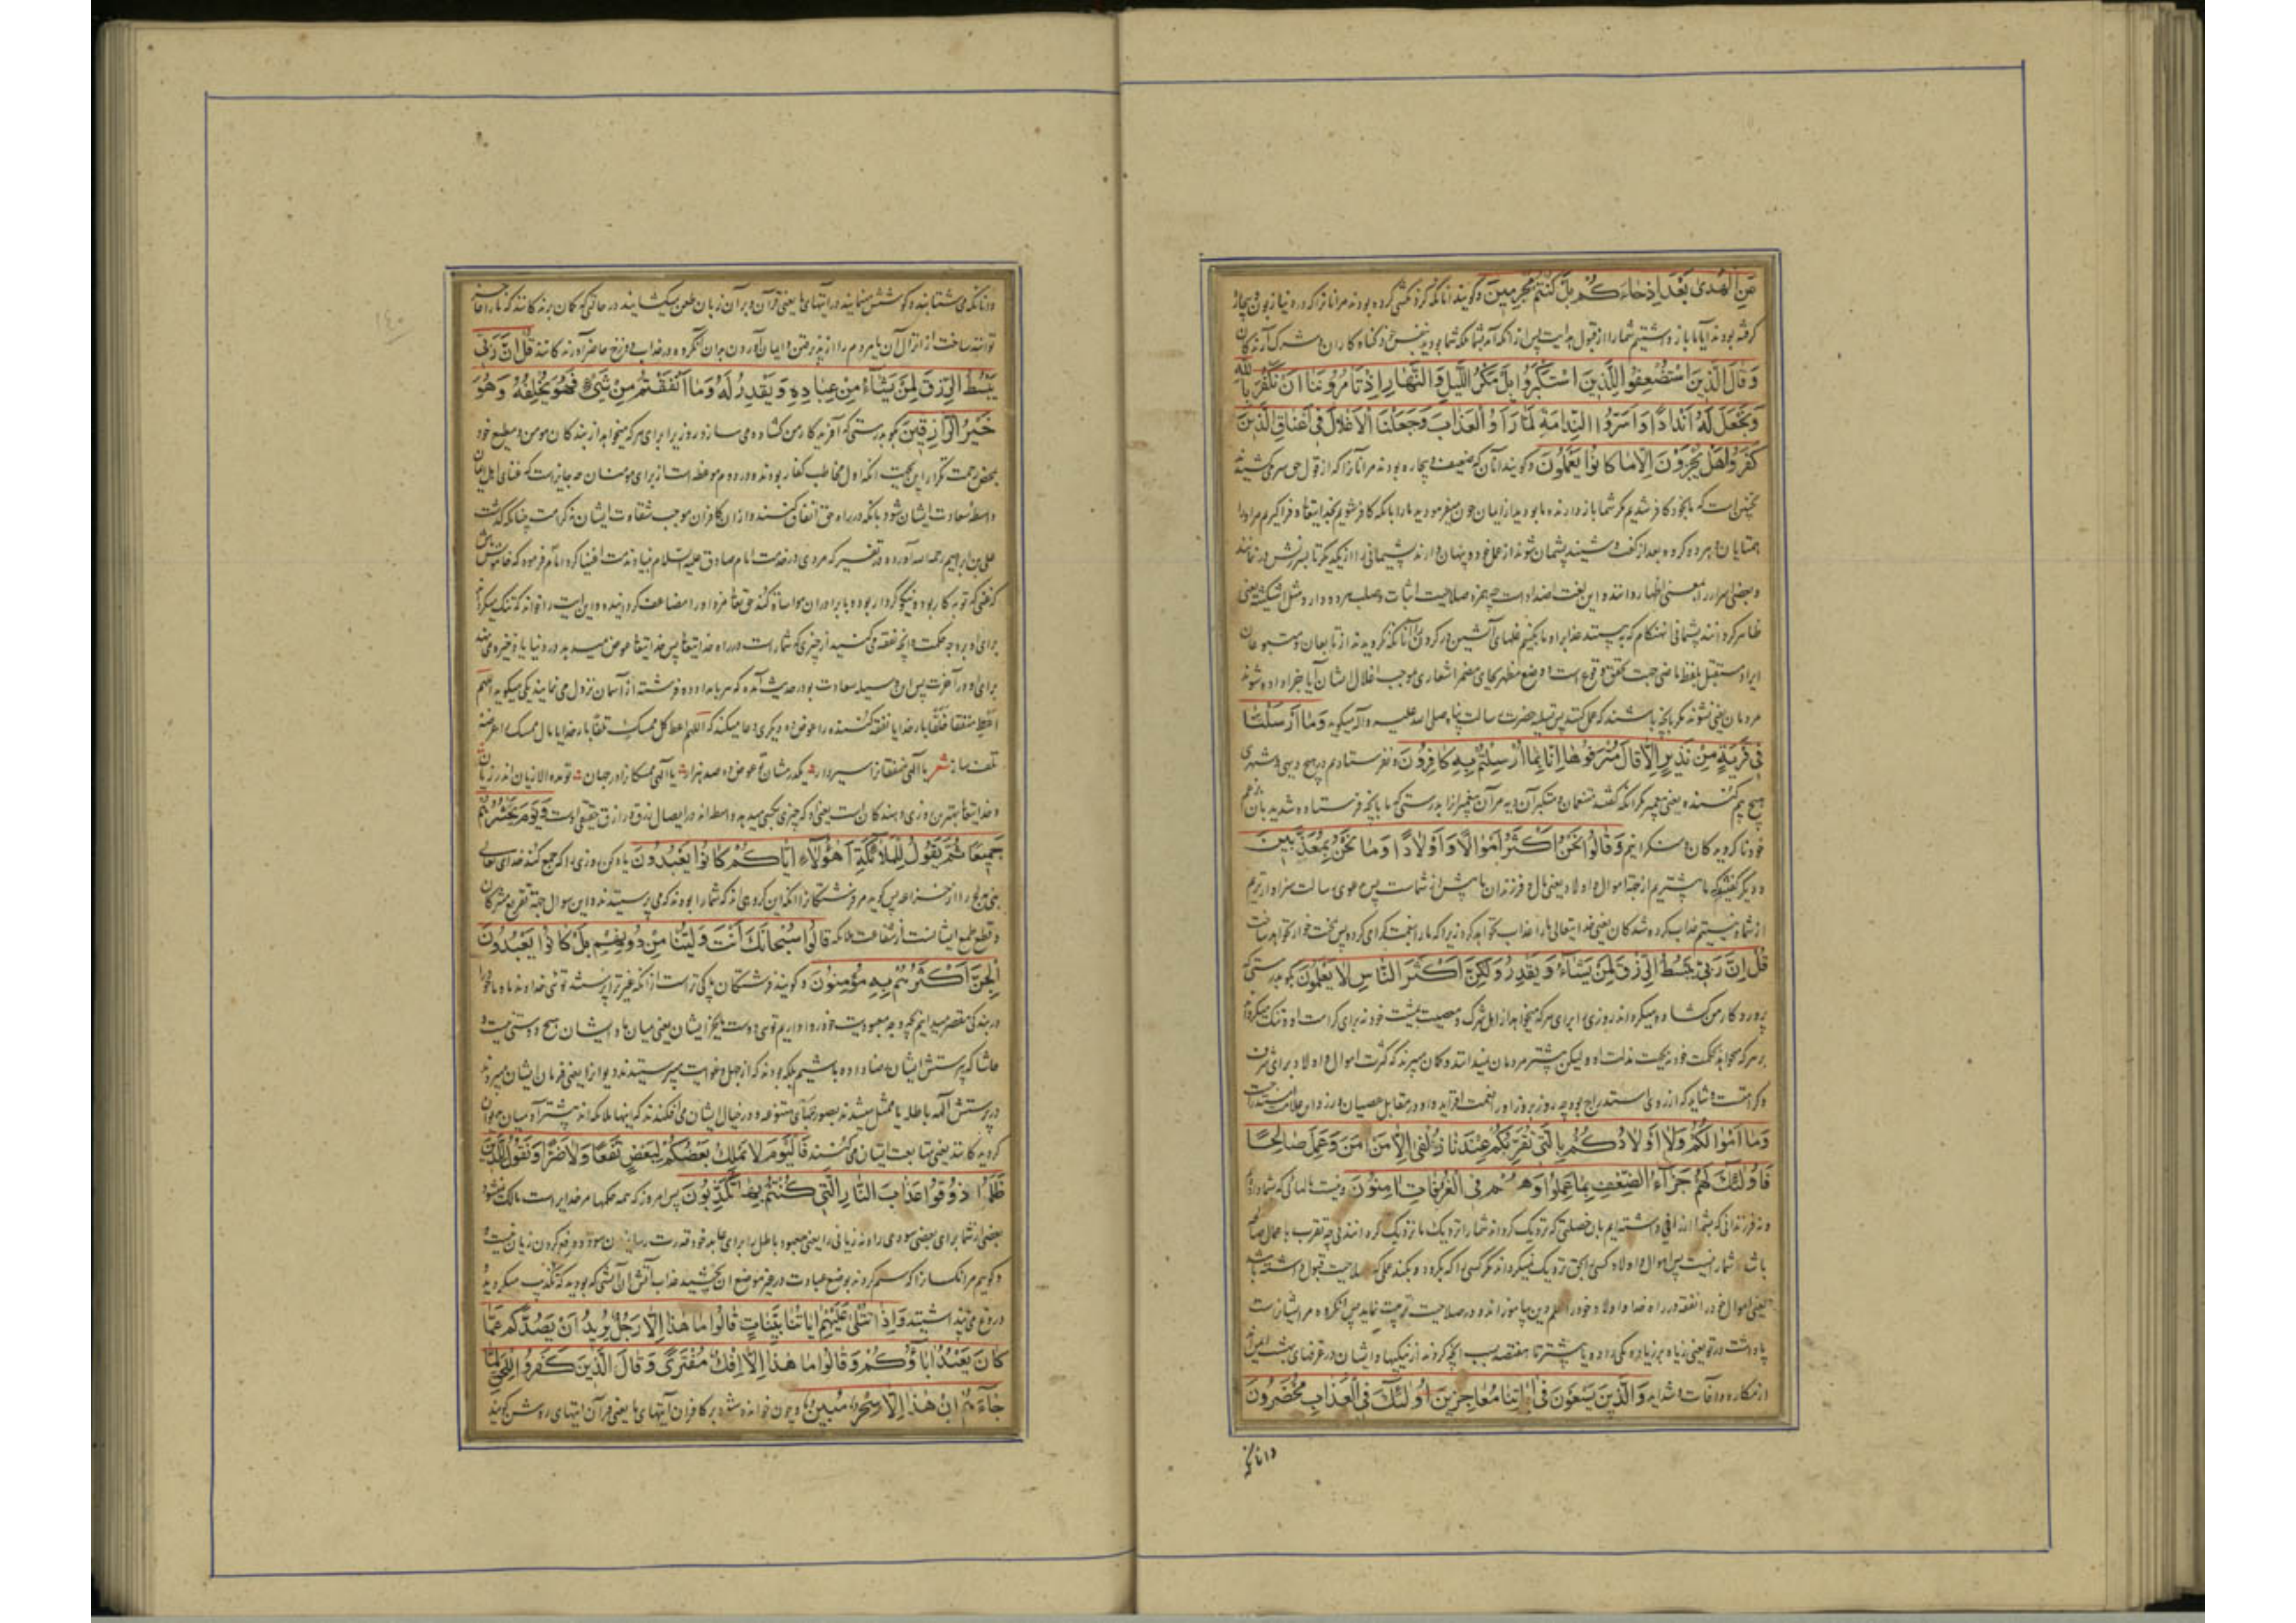 مِنَ الْهُدٰى بَعْدَ اِذْ جَاءَكُمْ بَلْ كُنْتُمْ مُجْرِمِينَ و گویند آنانکه گردنکشی کرده بودند مر آنانرا که در دنیا زبون و بیچاره
گرفته بودند آیا ما باز داشتیم شما را از قبول هدایت پس از آنکه آمد بشما بلکه شما بودید بنفس خود گناه کاران و مشرک آرندکان
وَقَالَ الَّذِينَ اسْتُضْعِفُوا لِلَّذِينَ اسْتَكْبَرُوا بَلْ مَكْرُ اللَّيْلِ وَالنَّهَارِ اِذْ تَأمُرُونَنَا اَنْ نَكْفُرَ بِاللّٰهِ
وَنَجْعَلَ لَهُ اَنْدَادًا وَاَسَرُّوا النَّدَامَةَ لَمَّا رَاَوُا الْعَذَابَ وَجَعَلْنَا الْاَغْلَالَ فِى اَعْنَاقِ الَّذِينَ
كَفَرُوا هَلْ يُجْزَوْنَ اِلَّا مَا كَانُوا يَعْمَلُونَ و گویند آنان که ضعیف و بیچاره بودند مر آنانرا که از قول حق سر می کشیدند
نچنین است که ما بخود کافر شدیم مکر شما باز دارنده ما بودید از ایمان چون میفرمودید ما را بانکه کافر شویم بخدایتعا و فرا گیریم مر او را
همتایان و هر دو کروه بعد از گفت و شنید پشمان شوند از عمل خود و پنهان دارند پشیمانی را از یکدیگر تا بسرزنش در نمانند
و بعضی اسرار را بمعنی اظهار و این لغت اضداد است چه همزه صلاحیت اثبات و سلب هر دو دارد مثل اشکیته یعنی
ظاهر کردانند پشمانی آنهنکام که به بینند عذابرا و ما بکنیم غلهای آتشین در گردن آنانکه نکرویدند از تابعان و متبوعان
ایراد مستقبل بلفظ ماضی جهت تحقق وقوع است و وضع مظهر بجای مضمر اشعار بموجب اغلال ایشان آیا جزا داده شوند
مردمان یعنی نشوند مکر بانچه باشند که عمل کنند پس تسلیه حضرت رسالت پناه صلی الله علیه و آله میکوید وَمَا اَرْسَلْنَا
فِى قَرْيَةٍ مِنْ نَذِيرٍ اِلَّا قَالَ مُتْرَفُوهَا اِنَّا بِمَا اُرْسِلْتُمْ بِهِ كَافِرُونَ و نفرستادیم در هیچ دیهی و شهری
هیچ بیم کننده یعنی پیغمبر مکر آنکه گفتند متنعمان و متکبران آن دیه مر آن پیغمبر را بدرستی که ما بانچه فرستاده شدید بآن بزعم
خود ناکرویدکان و منکرانیم وَقَالُوا نَحْنُ اَكْثَرُ اَمْوَالًا وَاَوْلَادًا وَمَا نَحْنُ بِمُعَذَّبِينَ
و دیگر گفتند که ما بیشتریم از جهة اموال و اولاد یعنی مال و فرزندان ما بیش از شماست پس بدعوی رسالت سزاوارتریم
از شما و نیستیم عذاب کرده شدکان یعنی خدایتعالی ما را عذاب نخواهد کرد زیرا که ما را بنعمت گرامی کرده پس بنقمت خوار نخواهد ساخت
قُلْ اِنَّ رَبِّى يَبْسُطُ الرِّزْقَ لِمَنْ يَشَاءُ وَيَقْدِرُ وَلٰكِنَّ اَكْثَرَ النَّاسِ لَا يَعْلَمُونَ بگو بدرستی که
پروردکار من کشاده میکرداند روزی را برای هر که میخواهد از اهل شرک و معصیت بمشیت خود نه برای کرامت او و تنک میکرداند
بر هر که میخواهد بحکمت خود نه بجهت مذلت او ولیکن بیشتر مردمان نمیدانند و کمان میبرند که کثرت اموال و اولاد برای شرف
و کرامتست و شاید که از روی استدراج بود چه روز بروز او را نعمت افزاید و او در مقابل عصیان ورزد و این علامت استدراجست
وَمَا اَمْوَالُكُمْ وَلَا اَوْلَادُكُمْ بِالَّتِى تُقَرِّبُكُمْ عِنْدَنَا زُلْفٰى اِلَّا مَنْ اٰمَنَ وَعَمِلَ صَالِحًا
فَاُولٰئِكَ لَهُمْ جَزَاءُ الضِّعْفِ بِمَا عَمِلُوا وَهُمْ فِى الْغُرُفَاتِ اٰمِنُونَ و نیست مالهائی که شما دارید
و نه فرزندانی که بشما ارزانی داشته‌ایم بان خصلتی که نزدیک کرداند شما را نزدیک ما نزدیک کردانیدنی چه تقرب باعمال صالح
باشد شما را نیست پس اموال و اولاد کسی را بحق نزدیک نمیکرداند مکر کسی را که بگرود و بکند عملی که صلاحیت قبول داشته باشد
یعنی اموال خود را نفقه در راه خدا و اولاد خود را علم دین بیاموزاند و در صلاحیت تربیت نماید پس آنکروه مر ایشانراست
پاداشت درتو یعنی زیاده بر زیاده یکی را ده و یا بیشتر تا هفتصد بسبب آنچه کردند از نیکیها و ایشان در غرفهای بهشت ایمنند
از مکاره و آفات و شداید وَالَّذِينَ يَسْعَوْنَ فِى اٰيَاتِنَا مُعَاجِزِينَ اُولٰئِكَ فِى الْعَذَابِ مُحْضَرُونَ
و انانکه
و انانکه می شتابند و کوشش مینمایند در آیتهای ما یعنی قرآن و بر آن زبان طعن میکشایند در حالتی که کمان برندکانند که ما را عاجز
توانند ساخت از انزال آن یا مردم را از پذیرفتن و ایمان آوردن بران آنگروه در عذاب دوزخ حاضر آورندکانند قُلْ اِنَّ رَبِّى
يَبْسُطُ الرِّزْقَ لِمَنْ يَشَاءُ مِنْ عِبَادِهِ وَيَقْدِرُ لَهُ وَمَا اَنْفَقْتُمْ مِنْ شَىْءٍ فَهُوَ يُخْلِفُهُ وَهُوَ
خَيْرُ الرَّازِقِينَ بگو بدرستی که آفریدکار من کشاده می سازد روزیرا برای هر که میخواهد از بندکان مومن و مطیع خود
بمحض رحمت تکرار این بجهت آنکه اول مخاطب کفار بودند و در دوم موعظه است از برای مومنان چه جایز است که غنای اهل ایمان
واسطه سعادت ایشان شود بانکه در راه حق انفاق کنند و از ان کافران موجب شقاوت ایشان نه کرامت چنانکه گذشت
علی بن ابراهیم رحمه الله آورده در تفسیر که مردی در خدمت امام صادق علیه السلام بنیاد مذمت اغنیا کرد امام فرمود که خاموش باش
که غنی که نیکوکار بود و نیکو کردار بود و با برادران مواساة کند حق تعا مزد او را مضاعف کرداند و این ایت را خواند که تنک میکرداند
برای او بر وجه حکمت و آنچه نفقه می کنید از چیزی که شما راست در راه خدایتعا پس خدایتعا عوض میدهد در دنیا یا ذخیره می نهد
برای او در آخرت پس ان وسیله سعادت بود در حدیث آمده که هر بامداد دو فرشته از آسمان نزول می نمایند یکی میکوید اللهم
اعْطِ منفقا خَلَفًا بار خدایا نفقه کننده را عوض ده و دیگری دعا میکند که اللهم اعط کل ممسک تلفا بار خدایا مال ممسک را عرضه
تلف ساز شعر یا الهی منفقانرا سیر دار یکدرمشان را عوض ده صد هزار یا الهی ممسکانرا در جهان تو مده الا زیان اندر زیان
و خدایتعا بهترین روزی دهندکان است یعنی او که چیزی بکسی میدهد واسطه اند در ایصال رزق و رازق حقیقی اوست وَيَوْمَ يَحْشُرُهُمْ
جَمِيعًا ثُمَّ يَقُولُ لِلْمَلَائِكَةِ اَهٰؤُلَاءِ اِيَّاكُمْ كَانُوا يَعْبُدُونَ یاد کن روزی را که جمع کنند خدای تعالی
بنی ملیح را از خزاعه پس گوید مر فرشتکانرا آیا این کروهی اند که شما را بودند که می پرستیدند و این سوال جهة تقریع مشرکان
و قطع طمع ایشانست از شفاعت ملائکه قَالُوا سُبْحَانَكَ اَنْتَ وَلِيُّنَا مِنْ دُونِهِمْ بَلْ كَانُوا يَعْبُدُونَ
الْجِنَّ اَكْثَرُهُمْ بِهِمْ مُؤْمِنُونَ و گویند فرشتکان پاکی تراست از آنکه غیر ترا پرستند توئی خداوند ما و ما خود را
در بندکی مقصر میدانیم بچه وجه معبودیت خود روا داریم توئی دوست ما بجز ایشان یعنی میان ما و ایشان هیچ دوستی نیست و
حاشا که پرستش ایشان رضا داده باشیم بلکه بودند که از جهل و غوایت میپرستیدند دیوانرا یعنی فرمان ایشان میبردند
در پرستش آلهه باطله یا ممثل میشدند بصورتهای متنوعه و در خیال ایشان می افکندند که اینها ملائکه اند بیشتر آدمیان بدیوان
کرویدکانند یعنی متابعت ایشان می کنند فَالْيَوْمَ لَا يَمْلِكُ بَعْضُكُمْ لِبَعْضٍ نَفْعًا وَلَا ضَرًّا وَنَقُولُ لِلَّذِينَ
ظَلَمُوا ذُوقُوا عَذَابَ النَّارِ الَّتِى كُنْتُمْ بِهَا تُكَذِّبُونَ پس امروز که همه حکمها مر خدایراست مالک نشود
بعضی از شما برای بعضی سودی را و نه زیانی را یعنی معبود باطل را برای عابد خود قدرت رسانیدن سود و دفع کردن زیان نیست
و گویم مر آنکسانرا که ستم کردند بوضع عبادت در غیر موضع ان بچشید عذاب آتش ان آتشی که بودید که تکذیب میکردید
دروغ می پنداشتید وَاِذَا تُتْلٰى عَلَيْهِمْ اٰيَاتُنَا بَيِّنَاتٍ قَالُوا مَا هٰذَا اِلَّا رَجُلٌ يُرِيدُ اَنْ يَصُدَّكُمْ عَمَّا
كَانَ يَعْبُدُ اٰبَاؤُكُمْ وَقَالُوا مَا هٰذَا اِلَّا اِفْكٌ مُفْتَرًى وَقَالَ الَّذِينَ كَفَرُوا لِلْحَقِّ لَمَّا
جَاءَهُمْ اِنْ هٰذَا اِلَّا سِحْرٌ مُبِينٌ و چون خوانده شود بر کافران آیتهای ما یعنی قرآن ایتهای روشن گویند